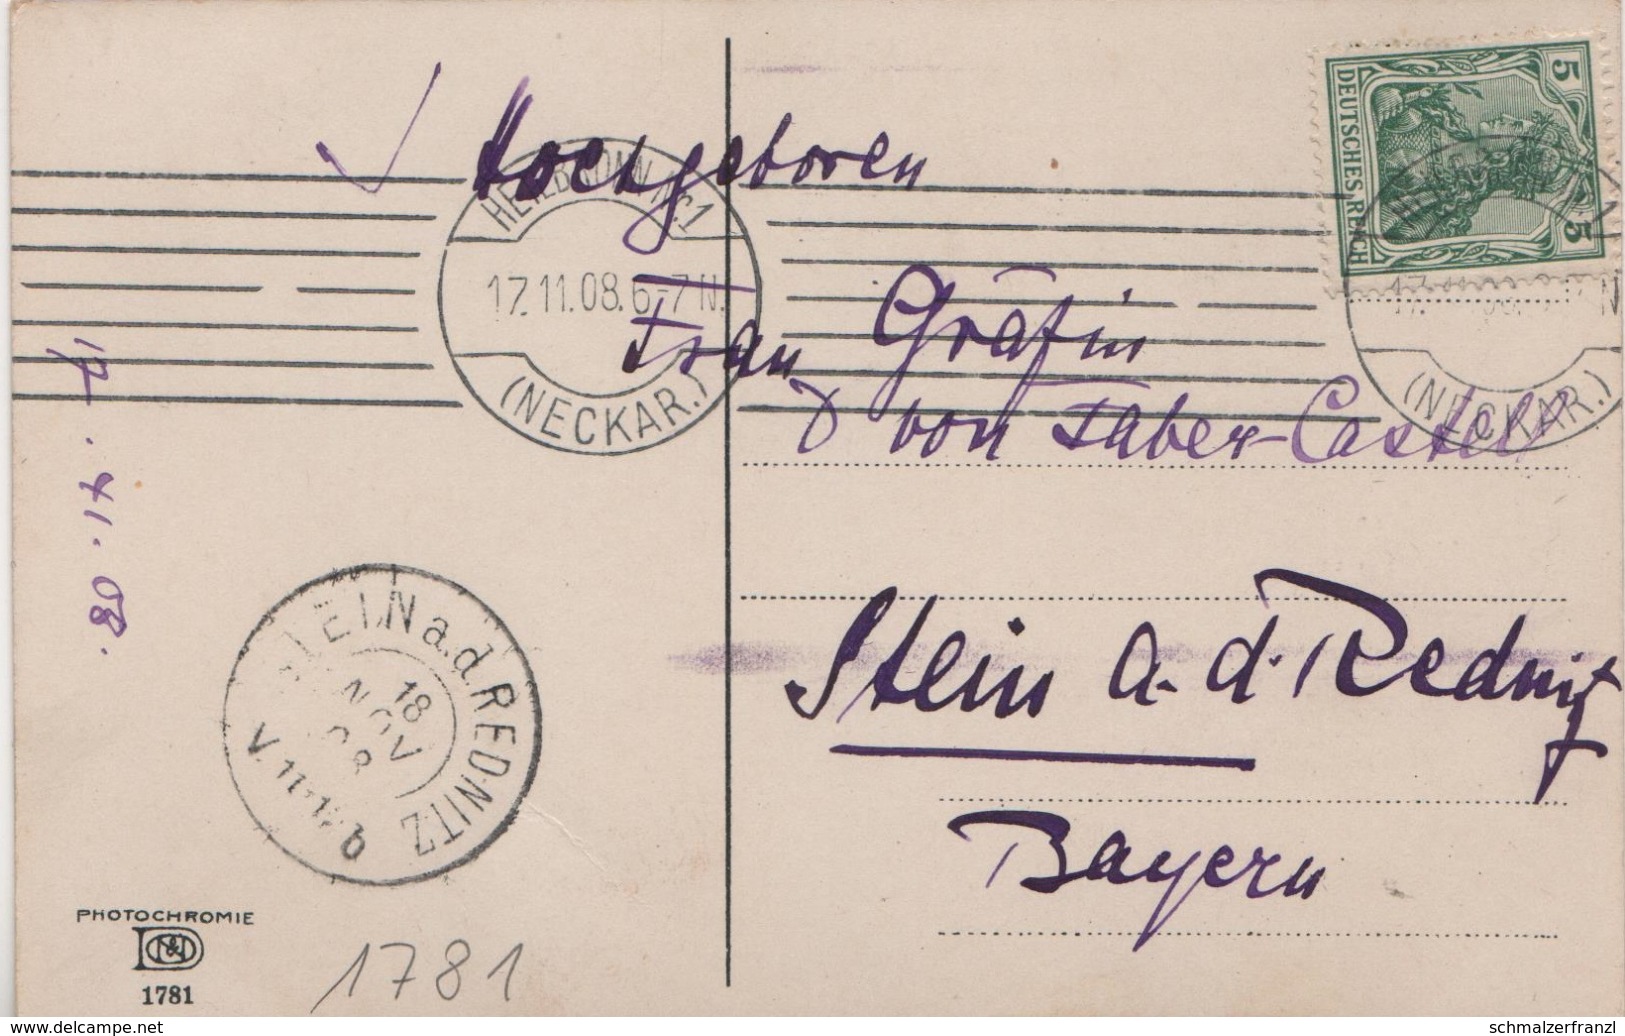 Hochgeboren
HEILBRONN
17.11.08.6-7N.
(NECKAR.)
5 DEUTSCHES REICH 5
17.
(NECKAR.)
Frau Gräfin
von Faber-Castell
Stein a.d. Rednitz
Bayern
STEIN a.d. REDNITZ
18 NOV 08
V. 11-12 b
PHOTOCHROMIE
1781
1781
www.delcampe.net
schmalzerfranzl